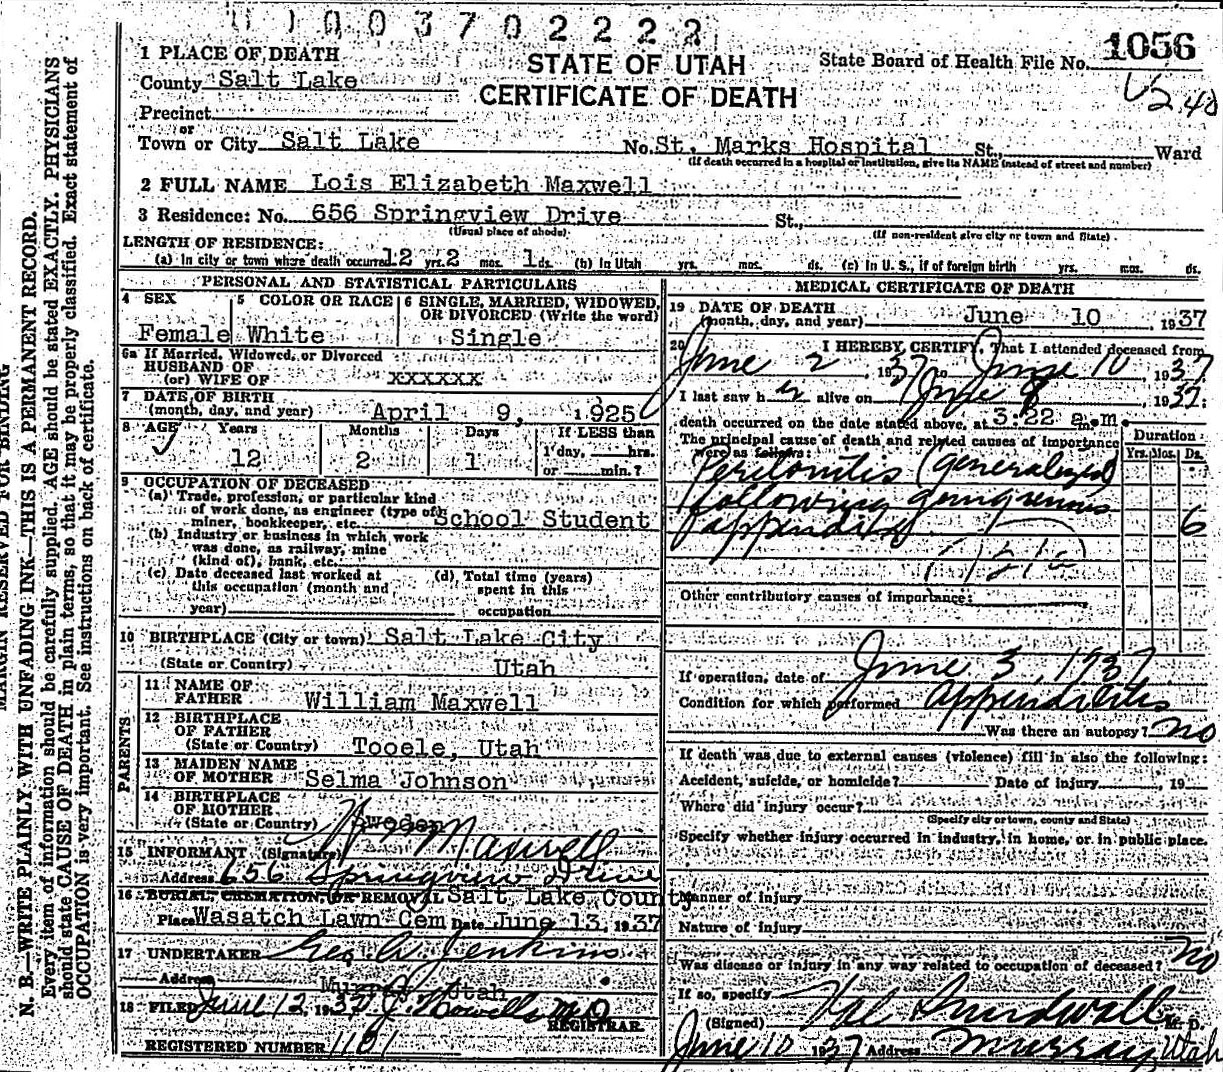 0003702222
1 PLACE OF DEATH
STATE OF UTAH
CERTIFICATE OF DEATH
State Board of Health File No. 1056
County Salt Lake
Precinct
or
Town or City Salt Lake No. St. Marks Hospital St., Ward
(If death occurred in a hospital or institution, give its NAME instead of street and number)
2 FULL NAME Lois Elizabeth Maxwell
3 Residence: No. 656 Springview Drive St.,
(Usual place of abode) (If non-resident give city or town and State)
LENGTH OF RESIDENCE:
(a) In city or town where death occurred 12 yrs. 2 mos. 1 ds. (b) In Utah yrs. mos. ds. (c) In U. S., if of foreign birth yrs. mos. ds.
PERSONAL AND STATISTICAL PARTICULARS
4 SEX
Female
5 COLOR OR RACE
White
6 SINGLE, MARRIED, WIDOWED,
OR DIVORCED (Write the word)
Single
6a If Married, Widowed, or Divorced
HUSBAND OF
(or) WIFE OF xxxxxx
7 DATE OF BIRTH
(month, day, and year) April 9, 1925
8 AGE Years Months Days If LESS than
12 2 1 1 day, hrs.
or min.?
9 OCCUPATION OF DECEASED
(a) Trade, profession, or particular kind
of work done, as engineer (type of)
miner, bookkeeper, etc. School Student
(b) Industry or business in which work
was done, as railway, mine
(kind of), bank, etc.
(c) Date deceased last worked at
this occupation (month and
year)
(d) Total time (years)
spent in this
occupation
10 BIRTHPLACE (City or town) Salt Lake City
(State or Country) Utah
PARENTS
11 NAME OF
FATHER William Maxwell
12 BIRTHPLACE
OF FATHER
(State or Country) Tooele, Utah
13 MAIDEN NAME
OF MOTHER Selma Johnson
14 BIRTHPLACE
OF MOTHER
(State or Country) Sweden
15 INFORMANT (Signature) Maxwell
Address 656 Springview Drive
16 BURIAL, CREMATION, OR REMOVAL Salt Lake County
Place Wasatch Lawn Cem Date June 13, 1937
17 UNDERTAKER Geo. A. Jenkins
Address Murray, Utah
18 FILED June 12 1937 M.D.
REGISTRAR.
REGISTERED NUMBER 1101
MEDICAL CERTIFICATE OF DEATH
19 DATE OF DEATH
(month, day, and year) June 10 1937
20 I HEREBY CERTIFY, That I attended deceased from
June 2, 1937 to June 10, 1937
I last saw her alive on June 8, 1937;
death occurred on the date stated above, at 3:22 a.m.
The principal cause of death and related causes of importance
were as follows:
Duration
Yrs. Mos. Ds.
Peritonitis (generalized)
following gangrenous
appendicitis 6
Other contributory causes of importance:
If operation, date of June 3, 1937
Condition for which performed Appendicitis
Was there an autopsy? no
If death was due to external causes (violence) fill in also the following:
Accident, suicide, or homicide? Date of injury, 19
Where did injury occur?
(Specify city or town, county and State)
Specify whether injury occurred in industry, in home, or in public place.
Manner of injury
Nature of injury
Was disease or injury in any way related to occupation of deceased? no
If so, specify
(Signed) Val Sundwall M. D.
June 10 1937 Address Murray Utah
MARGIN RESERVED FOR BINDING
N. B.—WRITE PLAINLY, WITH UNFADING INK—THIS IS A PERMANENT RECORD.
Every item of information should be carefully supplied. AGE should be stated EXACTLY. PHYSICIANS
should state CAUSE OF DEATH in plain terms, so that it may be properly classified. Exact statement of
OCCUPATION is very important. See instructions on back of certificate.